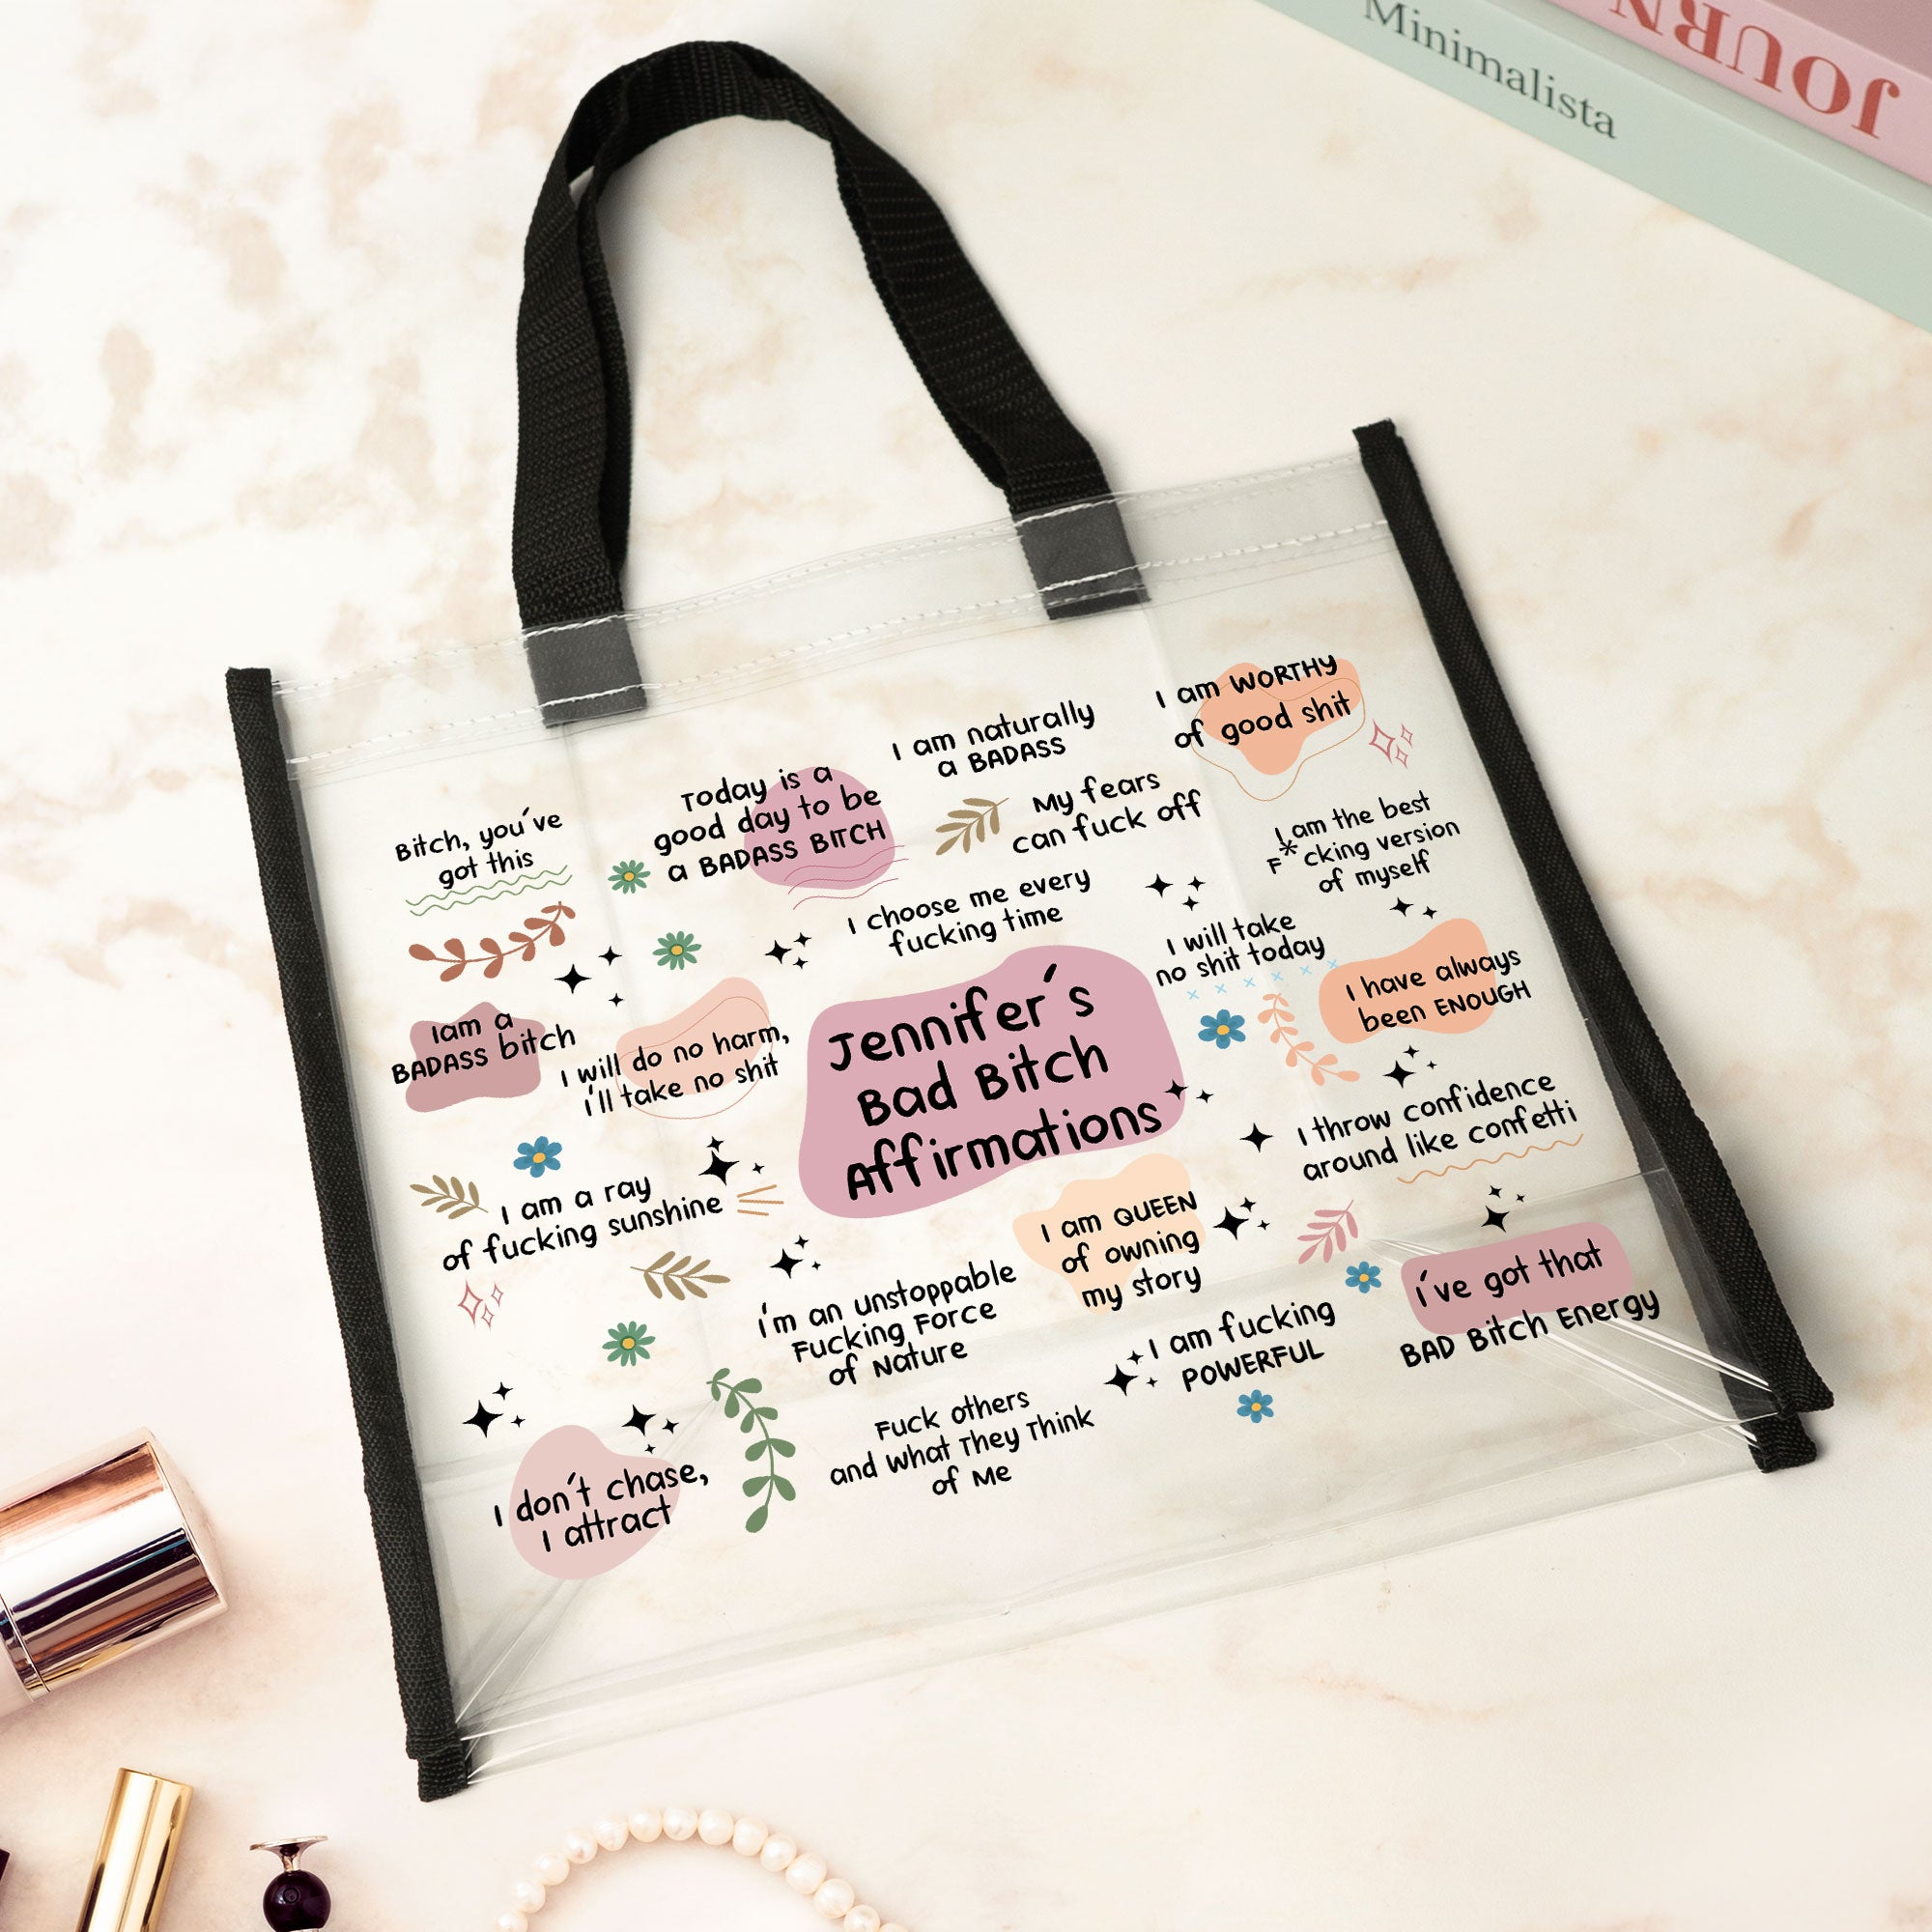 Minimalista
JOURN
I am WORTHY
of good shit
I am naturally
a BADASS
Today is a
good day to be
a BADASS BITCH
My fears
can fuck off
Bitch, you've
got this
I am the best
F*cking version
of myself
I choose me every
fucking time
I will take
no shit today
I have always
been ENOUGH
Iam a
BADASS bitch
I will do no harm,
i'll take no shit
Jennifer's
Bad Bitch
Affirmations
I throw confidence
around like confetti
I am a ray
of fucking sunshine
I am QUEEN
of owning
my story
i'm an unstoppable
Fucking Force
of Nature
I am fucking
POWERFUL
i've got that
BAD Bitch Energy
Fuck others
and What They Think
of Me
I don't chase,
I attract